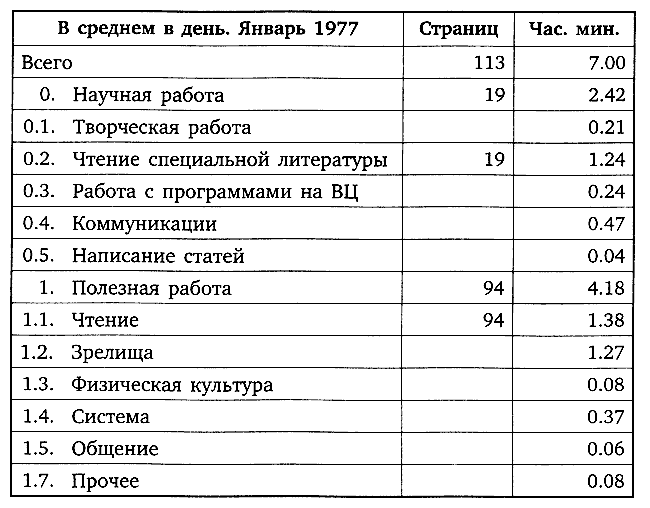 В среднем в день. Январь 1977 Страниц Час. мин.
Всего 113 7.00
0. Научная работа 19 2.42
0.1. Творческая работа 0.21
0.2. Чтение специальной литературы 19 1.24
0.3. Работа с программами на ВЦ 0.24
0.4. Коммуникации 0.47
0.5. Написание статей 0.04
1. Полезная работа 94 4.18
1.1. Чтение 94 1.38
1.2. Зрелища 1.27
1.3. Физическая культура 0.08
1.4. Система 0.37
1.5. Общение 0.06
1.7. Прочее 0.08